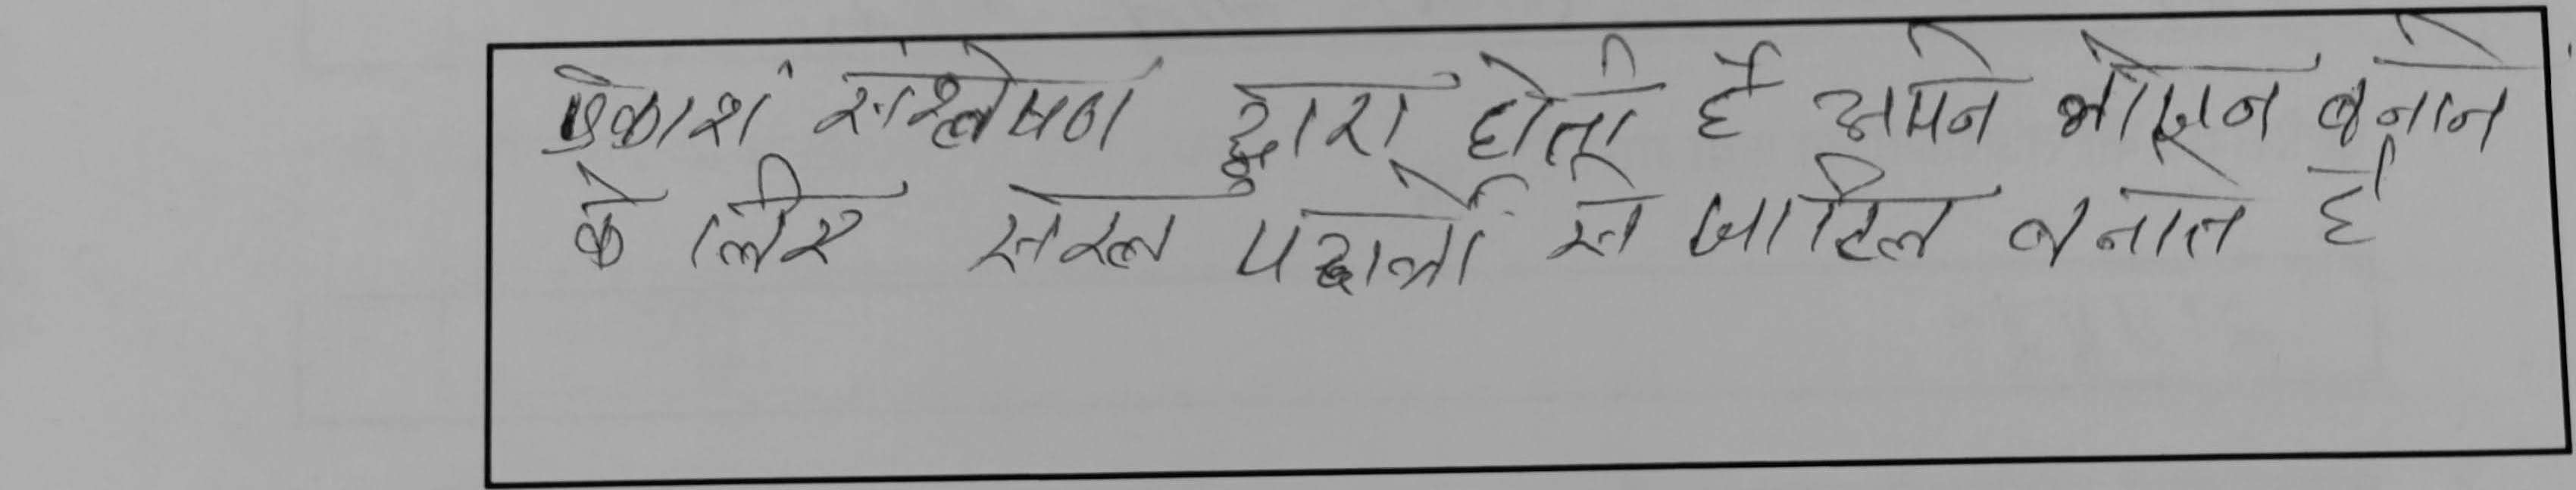 प्रकाश संश्लेषण द्वारा होता है अपने भोजन बनाने
के लिए सरल पदार्थो से जटिल बनाते है